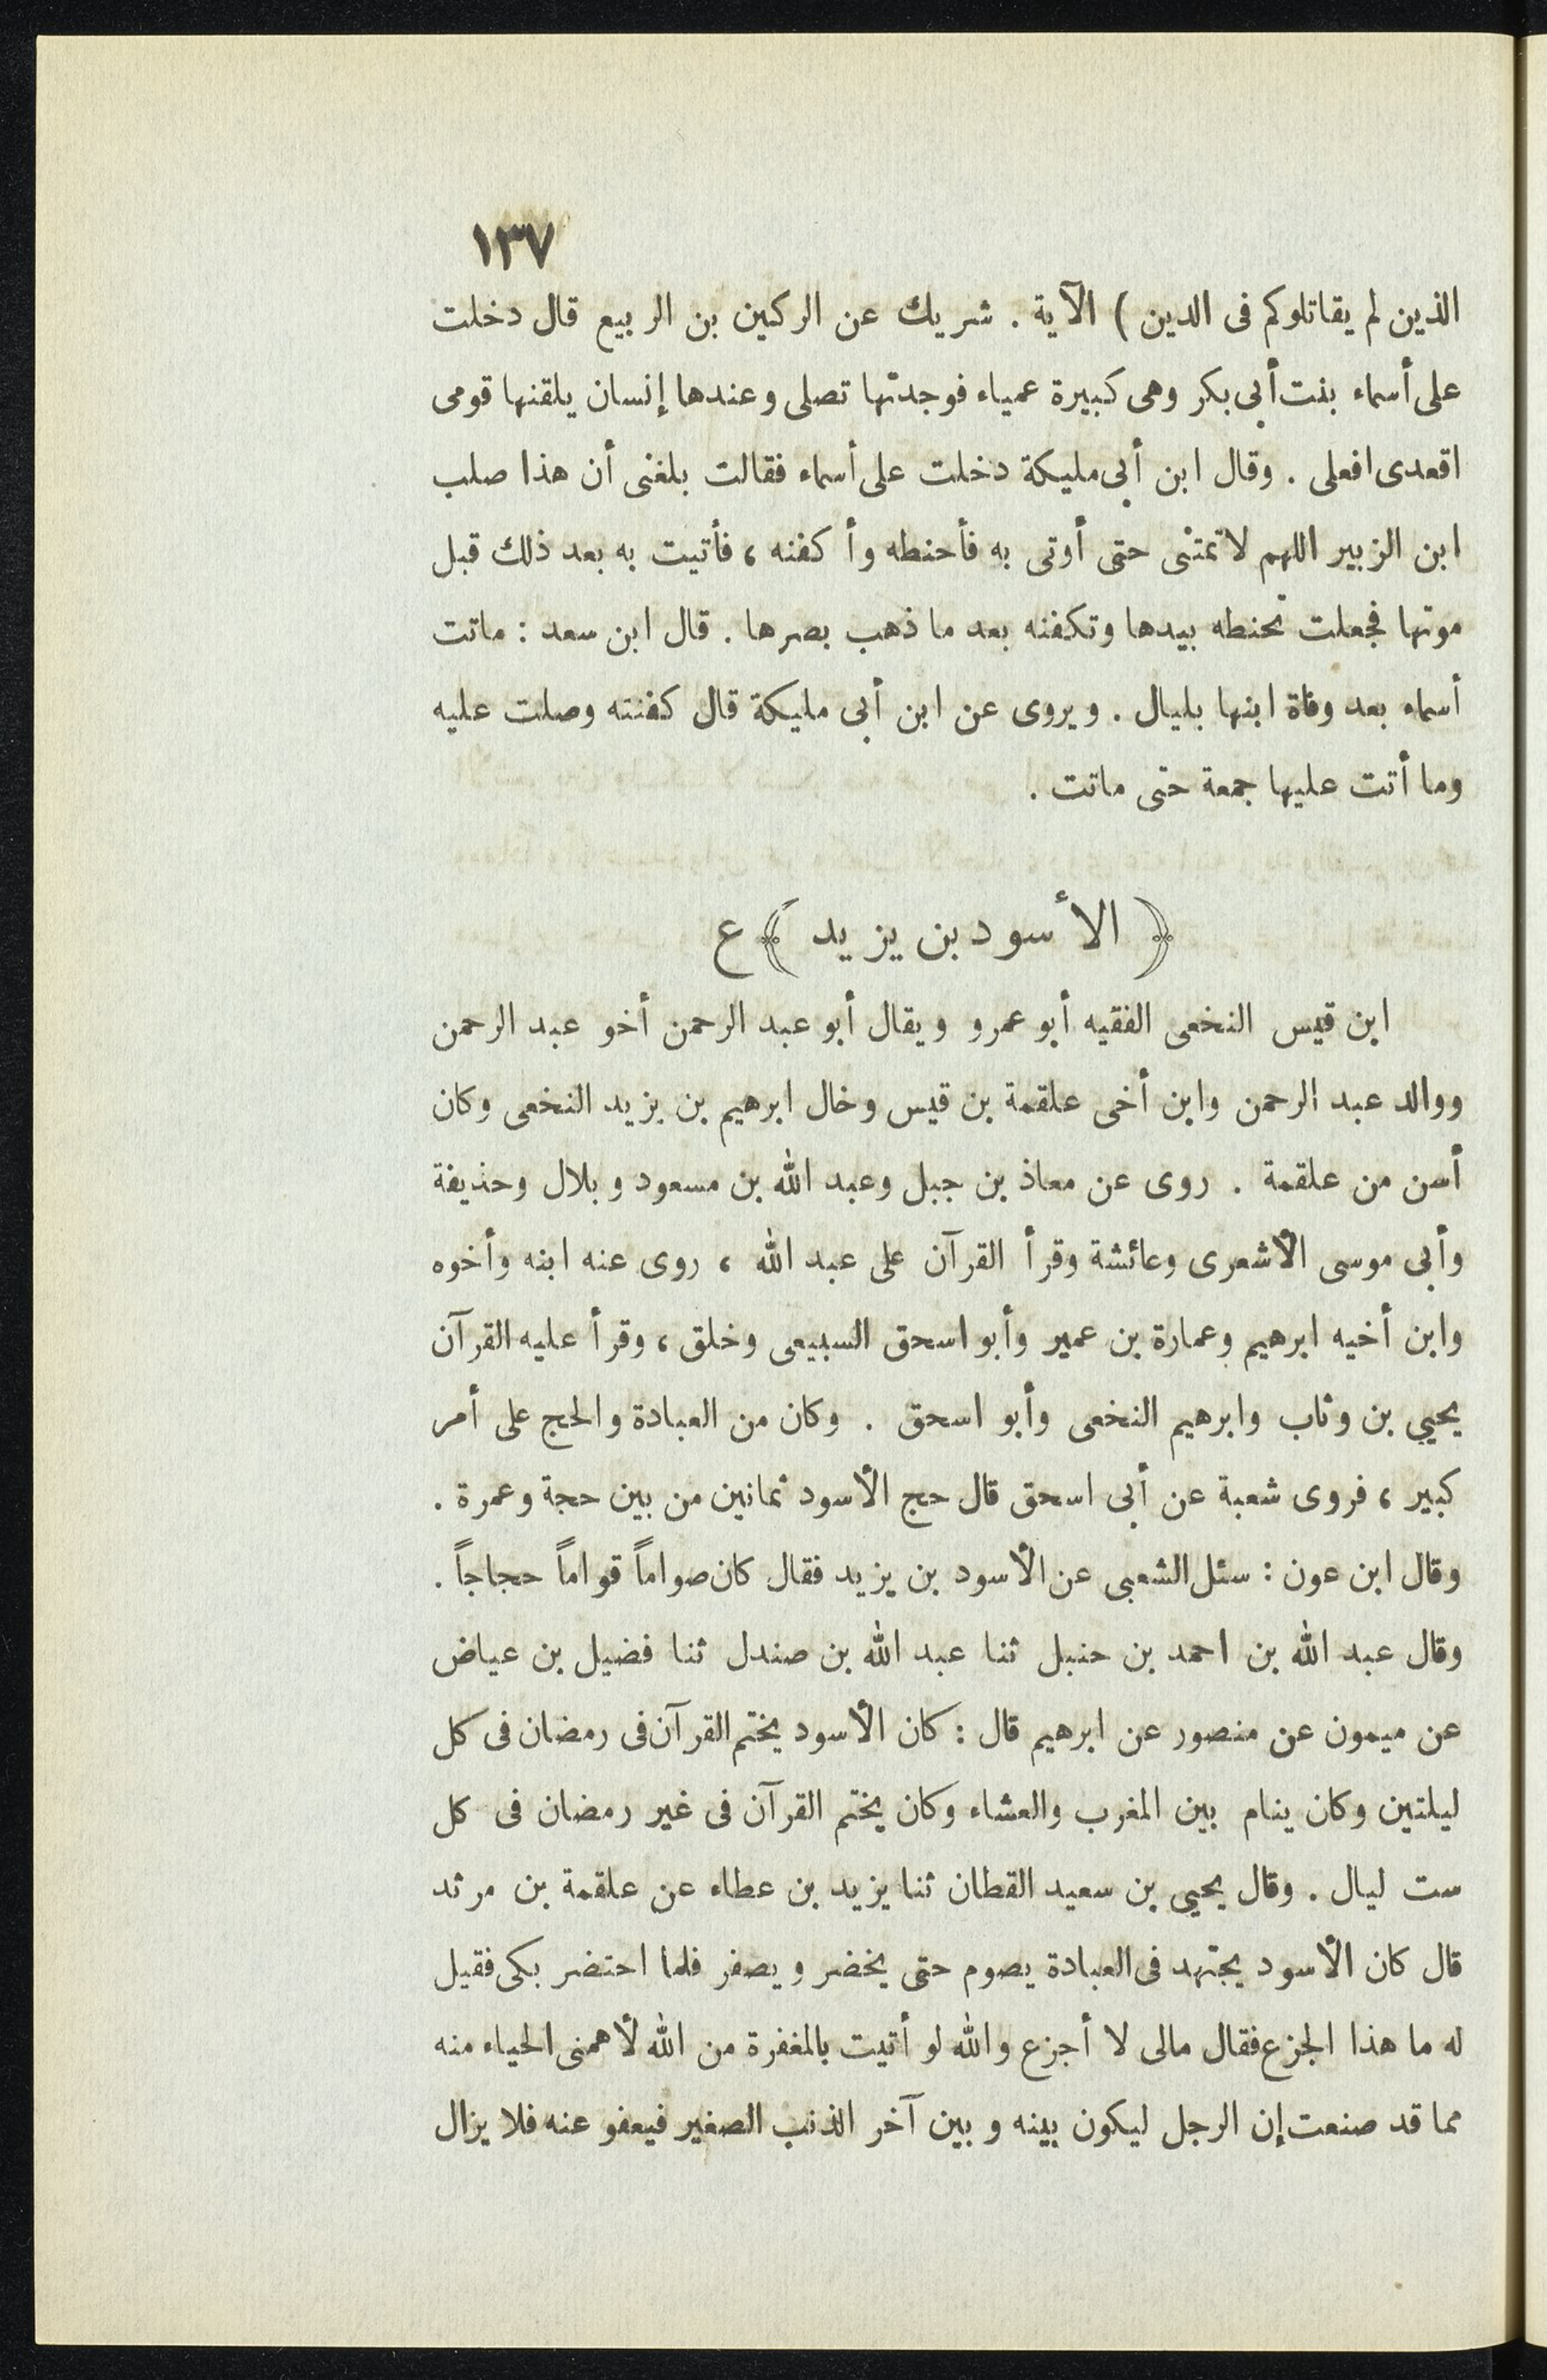 ١٣٧
الذين لم يقاتلوكم فى الدين ) الآية . شريك عن الركين بن الربيع قال دخلت
على أسماء بنت أبى بكر وهى كبيرة عمياء فوجدتها تصلى وعندها إنسان يلقنها قومى
اقعدى افعلى . وقال ابن أبى مليكة دخلت على أسماء فقالت بلغنى أن هذا صلب
ابن الزبير اللهم لا تمتنى حتى أوتى به فأحنطه وأكفنه ، فأتيت به بعد ذلك قبل
موتها فجعلت تحنطه بيدها وتكفنه بعد ما ذهب بصرها . قال ابن سعد : ماتت
أسماء بعد وفاة ابنها بليال . ويروى عن ابن أبى مليكة قال كفنته وصلت عليه
وما أتت عليها جمعة حتى ماتت .
﴿ الأسود بن يزيد ﴾ ع
ابن قيس النخعى الفقيه أبو عمرو ويقال أبو عبد الرحمن أخو عبد الرحمن
ووالد عبد الرحمن وابن أخى علقمة بن قيس وخال ابرهيم بن يزيد النخعى وكان
أسن من علقمة . روى عن معاذ بن جبل وعبد الله بن مسعود وبلال وحذيفة
وأبى موسى الأشعرى وعائشة وقرأ القرآن على عبد الله ، روى عنه ابنه وأخوه
وابن أخيه ابرهيم وعمارة بن عمير وأبو اسحق السبيعى وخلق ، وقرأ عليه القرآن
يحيي بن وثاب وابرهيم النخعى وأبو اسحق . وكان من العبادة والحج على أمر
كبير ، فروى شعبة عن أبى اسحق قال حج الأسود ثمانين من بين حجة وعمرة .
وقال ابن عون : سئل الشعبى عن الأسود بن يزيد فقال كان صواماً قواماً حجاجاً .
وقال عبد الله بن احمد بن حنبل ثنا عبد الله بن صندل ثنا فضيل بن عياض
عن ميمون عن منصور عن ابرهيم قال : كان الأسود يختم القرآن فى رمضان فى كل
ليلتين وكان ينام بين المغرب والعشاء وكان يختم القرآن فى غير رمضان فى كل
ست ليال . وقال يحيى بن سعيد القطان ثنا يزيد بن عطاء عن علقمة بن مرثد
قال كان الأسود يجتهد فى العبادة يصوم حتى يخضر ويصفر فلما احتضر بكى فقيل
له ما هذا الجزع فقال مالى لا أجزع والله لو أتيت بالمغفرة من الله لأهمنى الحياء منه
مما قد صنعت إن الرجل ليكون بينه وبين آخر الذنب الصغير فيعفو عنه فلا يزال